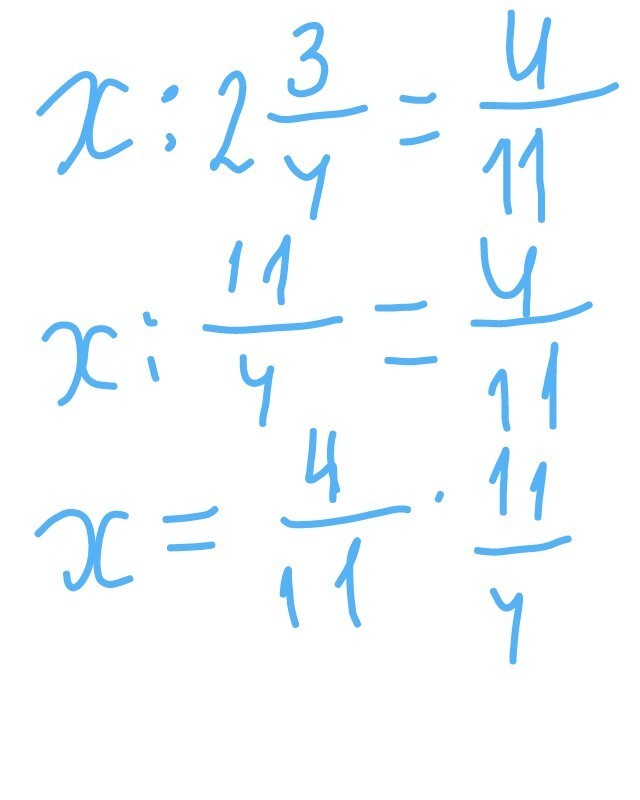 x : 2 3/4 = 4/11
x : 11/4 = 4/11
x = 4/11 · 11/4